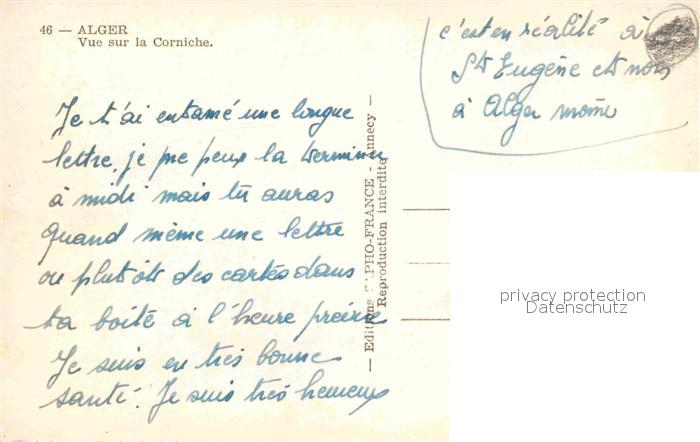 46 — ALGER
Vue sur la Corniche.
c'est en réalité à
St Eugène et non
à Alger même
Je t'ai entamé une longue
lettre, je ne peux la terminer
à midi mais tu auras
quand même une lettre
ou plutôt des cartes dans
ta boite à l'heure précise
Je suis en très bonne
santé. Je suis très heureux
— Editions PHO-FRANCE - Annecy —
Reproduction interdite
privacy protection
Datenschutz